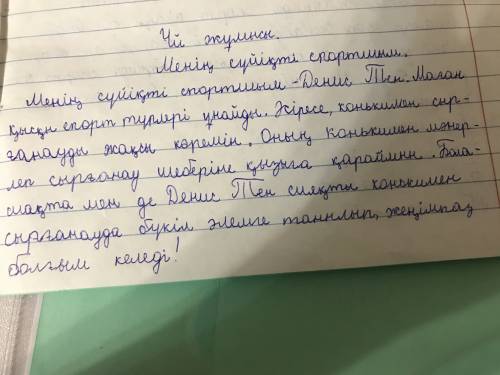 Үй жұмысы.
Менің сүйікті спортшым.
Менің сүйікті спортшым - Денис Тен. Маған
қысқы спорт түрлері ұнайды. Әсіресе, конькимен сыр-
ғанауды жақсы көремін. Оның конькимен мәнер-
леп сырғанау шеберіне қызыға қараймин. Бола-
шақта мен де Денис Тен сияқты конькимен
сырғанауда бүкіл әлемге танылып, жеңімпаз
болғым келеді!